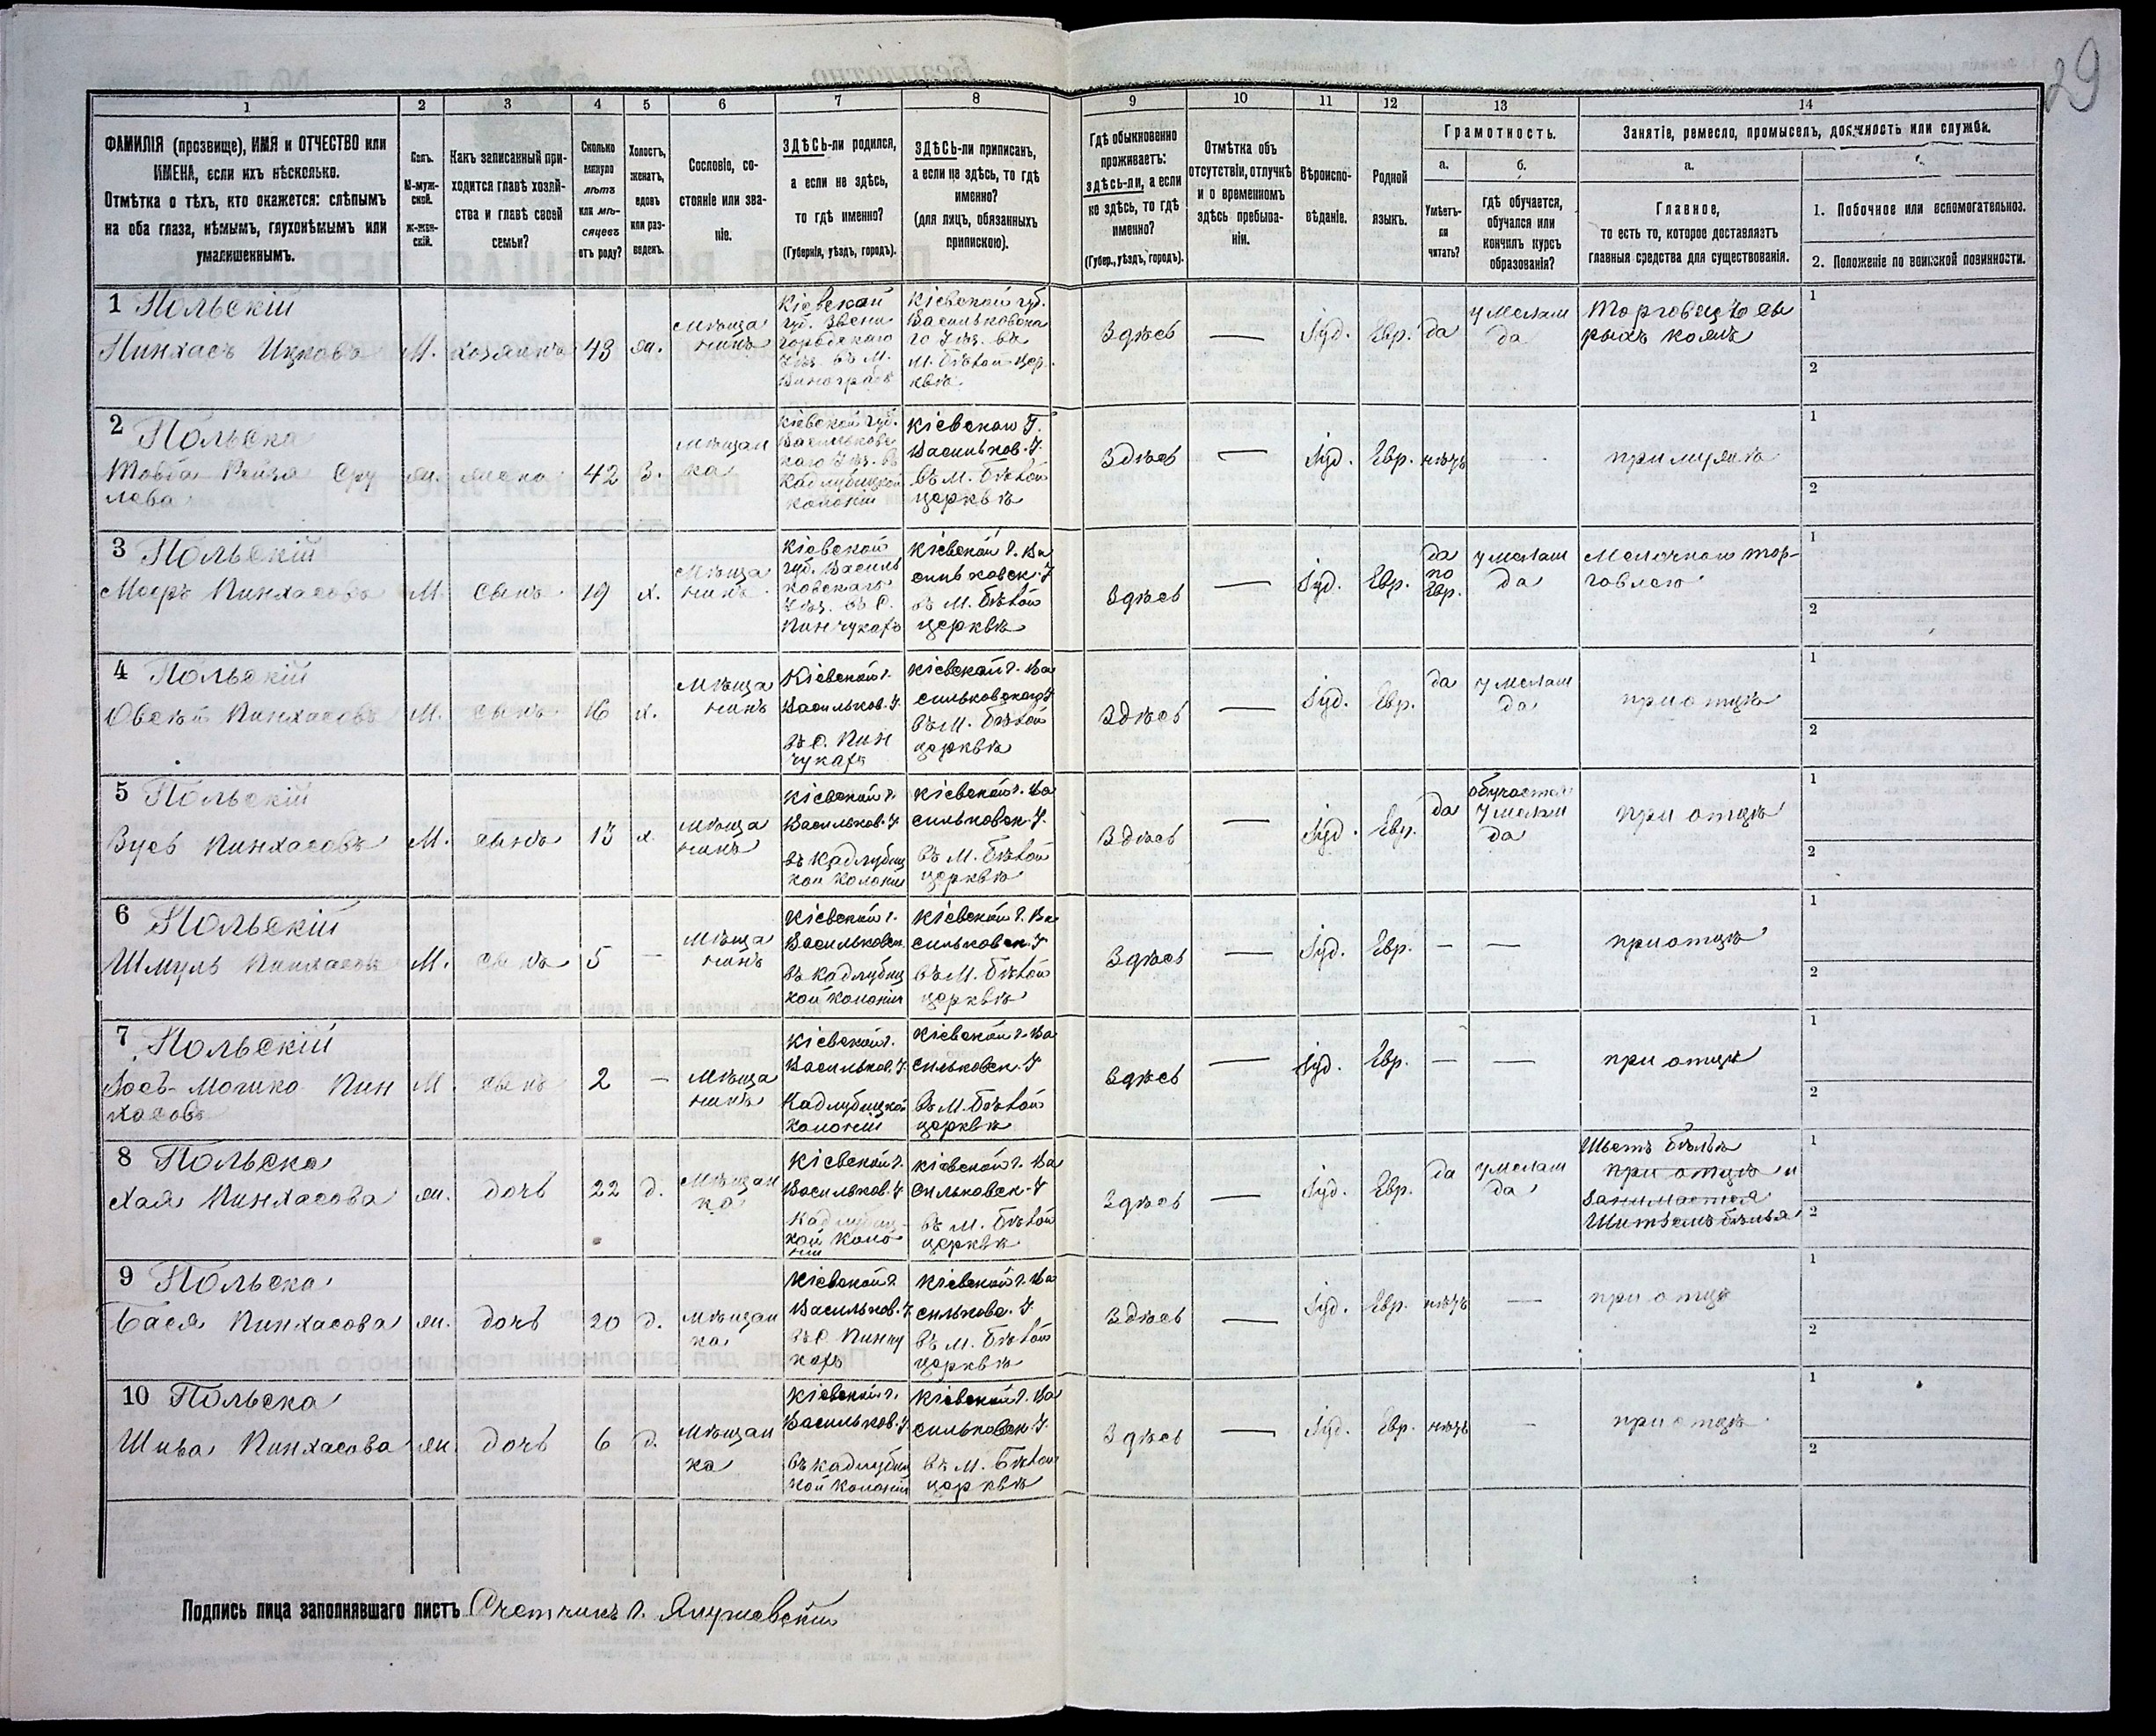 29
1 2 3 4 5 6 7 8 9 10 11 12 13 14
ФАМИЛІЯ (прозвище), ИМЯ и ОТЧЕСТВО или
ИМЕНА, если ихъ нѣсколько.
Отмѣтка о тѣхъ, кто окажется: слѣпымъ
на оба глаза, нѣмымъ, глухонѣмымъ или
умалишеннымъ.
Полъ.
М-муж-
ской.
Ж-жен-
скій.
Какъ записанный при-
ходится главѣ хозяй-
ства и главѣ своей
семьи?
Сколько
минуло
лѣтъ
или мѣ-
сяцевъ
отъ роду?
Холостъ,
женатъ,
вдовъ
или раз-
веденъ.
Сословіе, со-
стояніе или зва-
ніе.
ЗДѢСЬ-ли родился,
а если не здѣсь,
то гдѣ именно?
(Губернія, уѣздъ, городъ).
ЗДѢСЬ-ли приписанъ,
а если не здѣсь, то гдѣ
именно?
(для лицъ, обязанныхъ
припискою).
Гдѣ обыкновенно
проживаетъ:
здѣсь-ли, а если
не здѣсь, то гдѣ
именно?
(Губер., уѣздъ, городъ).
Отмѣтка объ
отсутствіи, отлучкѣ
и о временномъ
здѣсь пребыва-
ніи.
Вѣроиспо-
вѣданіе.
Родной
языкъ.
Грамотность.
а.
Умѣетъ-
ли
читать?
б.
гдѣ обучается,
обучался или
кончилъ курсъ
образованія?
Занятіе, ремесло, промыселъ, должность или служба.
а.
Главное,
то есть то, которое доставляетъ
главныя средства для существованія.
1. Побочное или вспомогательное.
2. Положеніе по воинской повинности.
1 Польскій
Пинхасъ Ицковъ
М.
хозяинъ
43
ж.
Мѣща
нинъ
Кіевской
губ. Звени
городскаго
Уѣз. въ М.
Виноградѣ
Кіевской губ.
Васильковска
го Уѣз. въ
М. Бѣлой-цер
квѣ
Здѣсь
—
Іуд.
Евр.
да
у Мелам
да
Торговецъ сы
рыхъ кожъ
1
2
2 Польска
Товба Рейзя Сру
лева
ж.
жена
42
З.
Мѣщан
ка
Кіевской губ.
Васильковс
каго Уѣз. въ
Кадлубицкой
колоніи
Кіевской Г.
Васильков. У.
въ М. Бѣлой
церквѣ
Здѣсь
—
Іуд.
Евр.
нѣтъ
—
при мужѣ
1
2
3 Польскій
Мееръ Пинхасовъ
М.
сынъ
19
х.
Мѣща
нинъ
Кіевской
губ. Василь
ковскаго
Уѣз. въ С.
Пинчукахъ
Кіевской г. Ва
сильковск. У
въ М. Бѣлой
церквѣ
Здѣсь
—
Іуд.
Евр.
да
по
Евр.
у мелам
да
Мелочною тор-
говлею
1
2
4 Польскій
Овсѣй Пинхасовъ
М.
сынъ
16
х.
Мѣща
нинъ
Кіевской г.
Васильков. У.
въ С. Пин
чукахъ
Кіевской г. Ва
сильковскаго У
въ М. Бѣлой
церквѣ
Здѣсь
—
Іуд.
Евр.
да
у мелам
да
при отцѣ
1
2
5 Польскій
Зусь Пинхасовъ
М.
сынъ
13
х.
Мѣща
нинъ
Кіевской г.
Васильков. У.
въ Кадлубиц
кой Колоніи
Кіевской г. Ва
сильковск. У.
въ М. Бѣлой
церквѣ
Здѣсь
—
Іуд.
Евр.
да
обучается
у мелам
да
при отцѣ
1
2
6 Польскій
Шмуль Пинхасовъ
М.
сынъ
5
—
Мѣща
нинъ
Кіевской г.
Васильковск.
въ Кадлубиц
кой колоніи
Кіевской г. Ва
сильковск. У
въ М. Бѣлой
церквѣ
Здѣсь
—
Іуд.
Евр.
—
—
при отцѣ
1
2
7 Польскій
Іосъ-Мошко Пин
хасовъ
М
сынъ
2
—
Мѣща
нинъ
Кіевской г.
Васильков. У.
Кадлубицкой
колоніи
Кіевской г. Ва
сильковск. У
въ М. Бѣлой
церквѣ
Здѣсь
—
Іуд.
Евр.
—
—
при отцѣ
1
2
8 Польска
Хая Пинхасова
ж.
дочь
22
д.
Мѣщан
ка
Кіевской г.
Васильков. У
Кадлубиц-
кой Коло
ніи
Кіевской г. Ва
сильковск. У
въ М. Бѣлой
церквѣ
Здѣсь
—
Іуд.
Евр.
да
у мелам
да
Шьетъ бѣлье
при отцѣ и
занимается
Шитьемъ бѣлья
1
2
9 Польска
Бася Пинхасова
ж.
дочь
20
д.
Мѣщан
ка
Кіевской г.
Васильков. У
въ С. Пинчу
кахъ
Кіевской г. Ва
сильковс. У.
въ М. Бѣлой
церквѣ
Здѣсь
—
Іуд.
Евр.
нѣтъ
—
при отцѣ
1
2
10 Польска
Шива Пинхасова
ж.
дочь
6
д.
Мѣщан
ка
Кіевской г.
Васильков. У
въ Кадлубиц
кой Колоніи
Кіевской г. Ва
сильковск. У.
въ М. Бѣлой
церквѣ
Здѣсь
—
Іуд.
Евр.
нѣтъ
—
при отцѣ
1
2
Подпись лица заполнявшаго листъ Счетчикъ